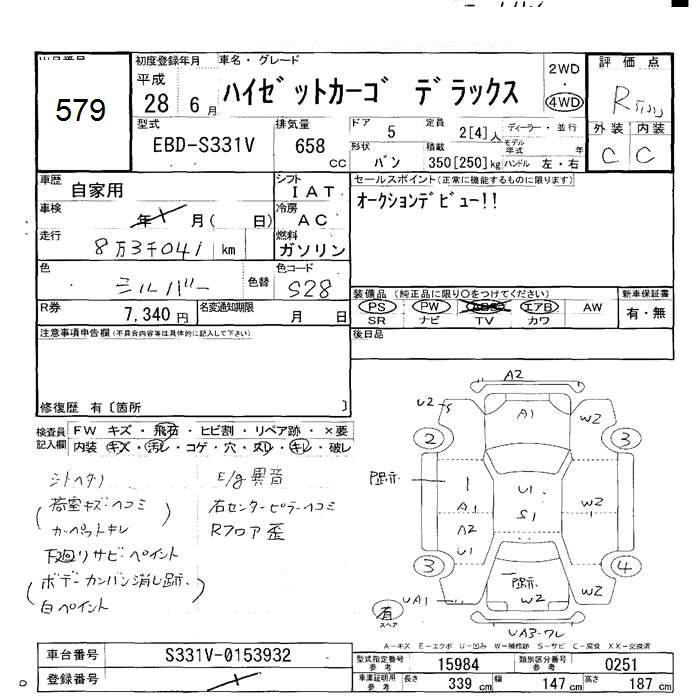 579
初度登録年月
平成
28 6月
車名・グレード
ハイゼットカーゴ デラックス
2WD
・
4WD
評価点
R
外装 内装
C C
型式
EBD-S331V
排気量
658 CC
ドア
5
定員
2[4]人
ディーラー・並行
形状
バン
積載
350[250]kg
モデル年式 年
ハンドル 左・右
車歴
自家用
シフト
IAT
セールスポイント(正常に機能するものに限ります)
オークションデビュー!!
車検
年 月( 日)
冷房
AC
走行
8万3千041 km
燃料
ガソリン
色
シルバー
色替
色コード
S28
装備品(純正品に限り○をつけてください)
PS PW ABS エアB AW
SR ナビ TV カワ
新車保証書
有・無
R券
7,340円
名変通知期限
月 日
注意事項申告欄(不具合内容等は具体的に記入して下さい)
後日品
修復歴 有〔箇所 〕
検査員記入欄
FW キズ・飛石・ヒビ割・リペア跡・×要
内装 キズ・汚レ・コゲ・穴・スレ・キレ・破レ
シートヘタリ
E/g異音
(荷室キズ・ヘコミ
右センターピラーヘコミ
カーペットキレ)
Rフロア歪
下廻りサビ・ペイント
(ボデーカンバン消し跡・
白ペイント)
A2
U2-S
A1
W2
2
3
凹跡
1
A1
U1
S1
W2
A2
U1
W2
3
4
凹跡
W2
W2
UA1
有
スペア
UA3-ワレ
A-キズ E-エクボ U-凹み W-補修跡 S-サビ C-腐食 XX-交換済
車台番号
S331V-0153932
登録番号
型式指定番号 参考
15984
類別区分番号 参考
0251
車庫証明用 参考
長さ
339 cm
幅
147 cm
高さ
187 cm